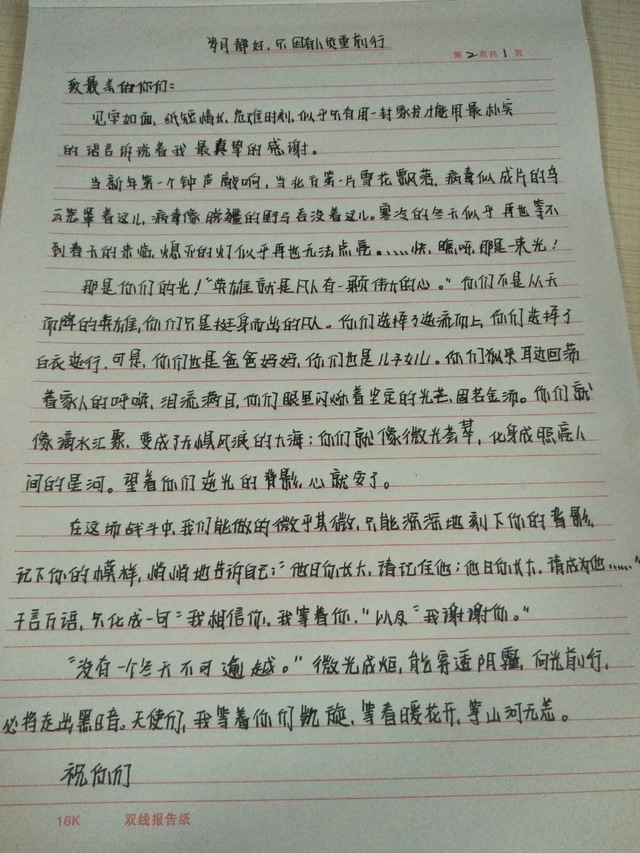 岁月静好,只因有人负重前行
第2页共1页
致最美的你们:
见字如面,纸短情长,危难时刻,似乎只有用一封家书才能用最朴实
的语言诉说着我最真挚的感谢。
当新年第一个钟声敲响,当北方第一片雪花飘落,病毒似成片的乌
云笼罩着这儿,病毒像脱疆的野马吞没着这儿。寒冷的冬天似乎再也等不
到春天的来临,熄灭的灯似乎再也无法点亮。……快,瞧呀,那是一束光!
那是你们的光!“英雄就是凡人有一颗伟大的心。”你们不是从天
而降的英雄,你们只是挺身而出的凡人。你们选择了逆流而上,你们选择了
白衣逆行。可是,你们也是爸爸妈妈,你们也是儿子女儿。你们纵来耳边回荡
着家人的呼唤,泪流满目,你们眼里闪烁着坚定的光芒,固若金汤。你们就
像滴水汇聚,变成了无惧风浪的大海;你们就像微光荟萃,化身成照亮人
间的星河。望着你们逆光的背影,心就安了。
在这场战斗中,我们能做的微乎其微,只能深深地刻下你的背影,
记下你的模样,悄悄地告诉自己:“他日你长大,请记住他;他日你长大,请成为他……”
千言万语,只化成一句“我相信你,我等着你,”以及“我谢谢你。”
“没有一个冬天不可逾越。”微光成炬,能穿透阴霾,向光前行,
必将走出黑暗。天使们,我等着你们凯旋,等春暖花开,等山河无恙。
祝你们
16K 双线报告纸